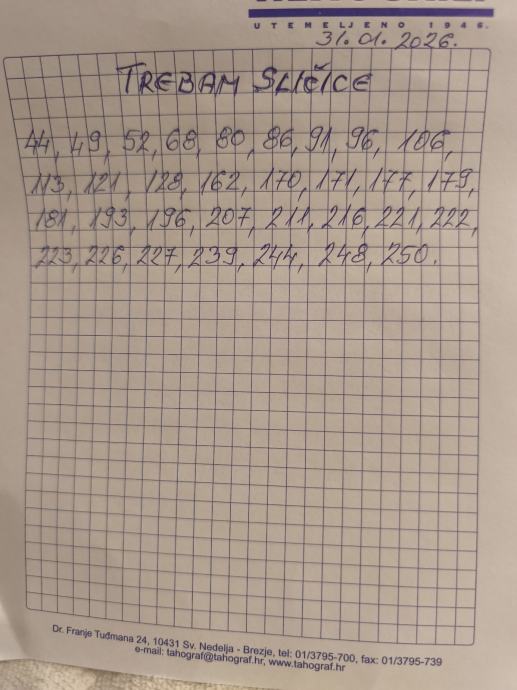 UTEMELJENO 1946.
31.01.2026.
TREBAM SLIČICE
44, 49, 52, 68, 80, 86, 91, 96, 106,
113, 121, 128, 162, 170, 171, 177, 179,
181, 193, 196, 207, 211, 216, 221, 222,
223, 226, 227, 239, 244, 248, 250.
Dr. Franje Tuđmana 24, 10431 Sv. Nedelja - Brezje, tel: 01/3795-700, fax: 01/3795-739
e-mail: tahograf@tahograf.hr, www.tahograf.hr